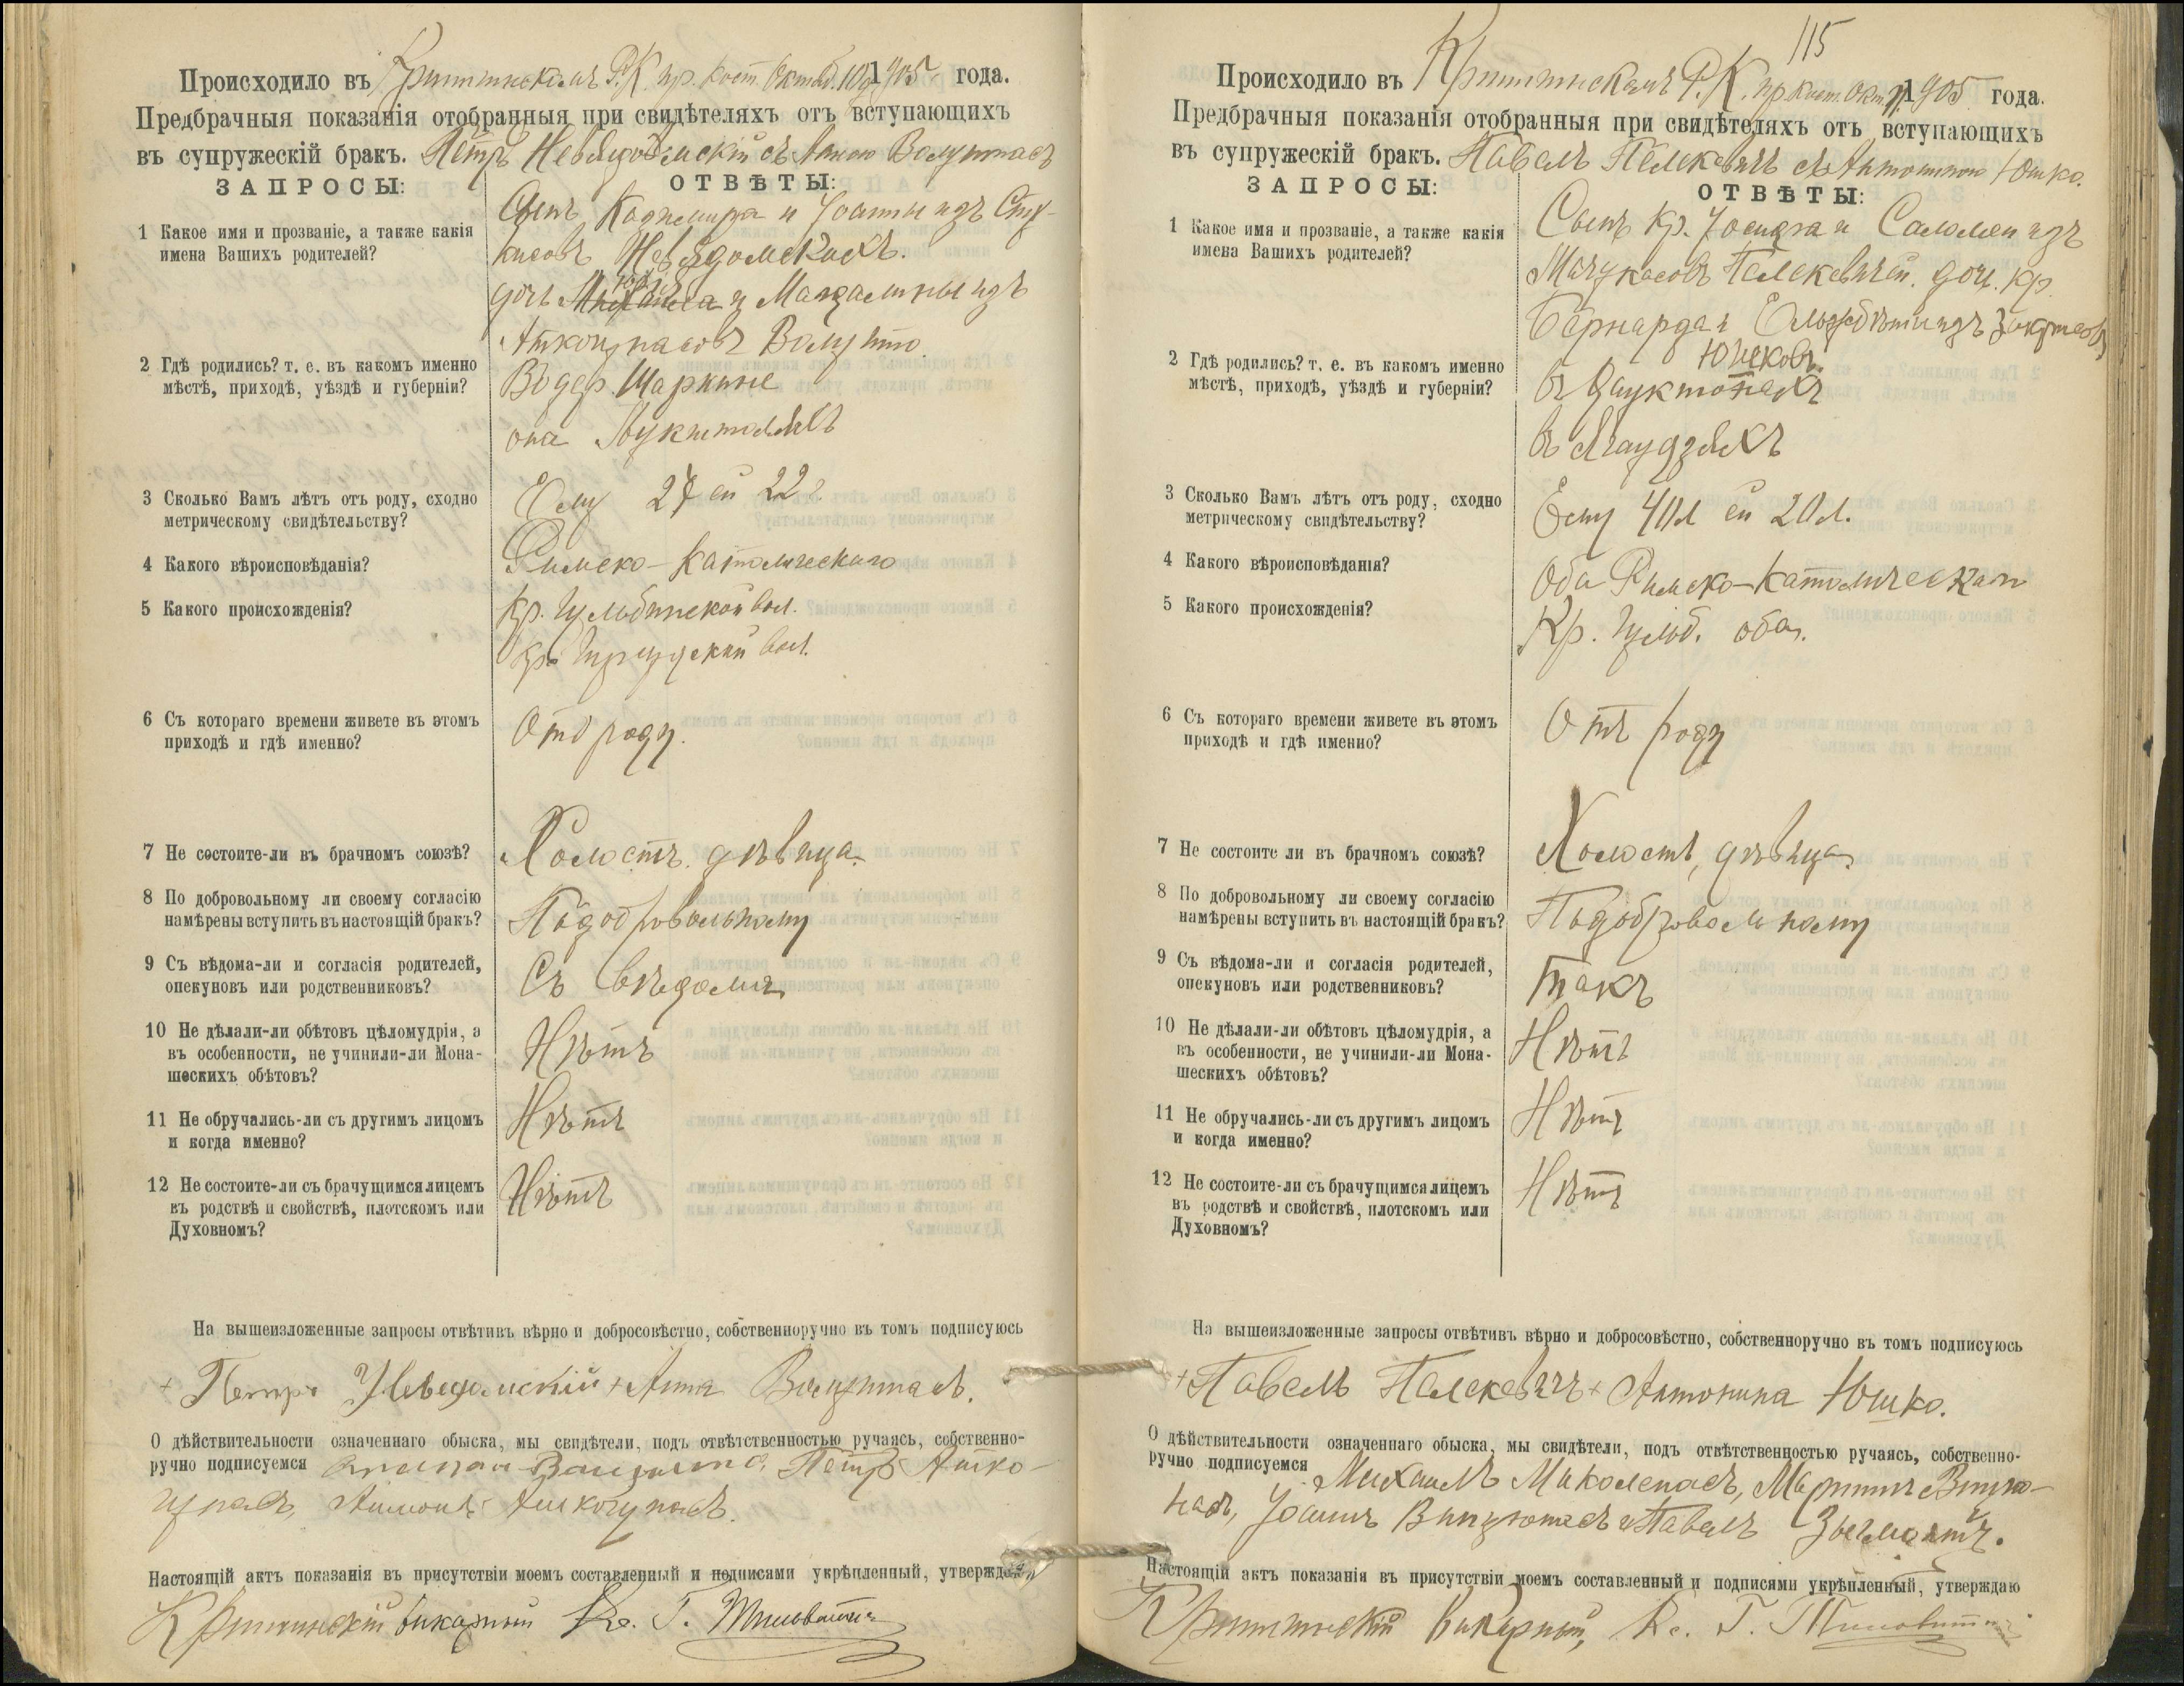 Происходило въ Криттинскомъ Р. К. пр. кост. Октяб. 10 д 1905 года.
Предбрачныя показанія отобранныя при свидѣтеляхъ отъ вступающихъ
въ супружескій бракъ. Петръ съ Анною
ЗАПРОСЫ:
ОТВѢТЫ:
1 Какое имя и прозваніе, а также какія
имена Вашихъ родителей?
Сынъ Казимира и Іоанны изъ
Невядомскихъ.
дочь и Магдалины изъ
2 Гдѣ родились? т. е. въ какомъ именно
мѣстѣ, приходѣ, уѣздѣ и губерніи?
Въ дер. Шаркине
она
3 Сколько Вамъ лѣтъ отъ роду, сходно
метрическому свидѣтельству?
Ему 27 ей 22
4 Какого вѣроисповѣданія?
Римско-Католическаго
5 Какого происхожденія?
Кр. вол.
кр. вол.
6 Съ котораго времени живете въ этомъ
приходѣ и гдѣ именно?
Отъ роду.
7 Не состоите-ли въ брачномъ союзѣ?
Холостъ. дѣвица.
8 По добровольному ли своему согласію
намѣрены вступить въ настоящій бракъ?
Подобровольному
9 Съ вѣдома-ли и согласія родителей,
опекуновъ или родственниковъ?
Съ вѣдома
10 Не дѣлали-ли обѣтовъ цѣломудрія, а
въ особенности, не учинили-ли Мона-
шескихъ обѣтовъ?
Нѣтъ
11 Не обручались-ли съ другимъ лицомъ
и когда именно?
Нѣтъ
12 Не состоите-ли съ брачущимся лицемъ
въ родствѣ и свойствѣ, плотскомъ или
Духовномъ?
Нѣтъ
На вышеизложенные запросы отвѣтивъ вѣрно и добросовѣстно, собственноручно въ томъ подписуюсь
+ Петръ Невядомскій + Анна
О дѣйствительности означеннаго обыска, мы свидѣтели, подъ отвѣтственностью ручаясь, собственно-
ручно подписуемся Петръ Атко-
Настоящій актъ показанія въ присутствіи моемъ составленный и подписами укрѣпленный, утверждаю
Криттинскій викарный Кс. Г.
115
Происходило въ Криттинскомъ Р. К. пр. кост. Окт. 1905 года.
Предбрачныя показанія отобранныя при свидѣтеляхъ отъ вступающихъ
въ супружескій бракъ. Павелъ Пелскевичъ съ Антониною Юшко.
ЗАПРОСЫ:
ОТВѢТЫ:
1 Какое имя и прозваніе, а также какія
имена Вашихъ родителей?
Сынъ кр. Іосифа и Саломеи изъ
Пелскевичей. доч. кр.
Бернарда и изъ
Юшковъ.
2 Гдѣ родились? т. е. въ какомъ именно
мѣстѣ, приходѣ, уѣздѣ и губерніи?
въ
въ
3 Сколько Вамъ лѣтъ отъ роду, сходно
метрическому свидѣтельству?
Ему 40 л ей 20 л.
4 Какого вѣроисповѣданія?
Оба Римско-Католическаго
5 Какого происхожденія?
Кр. оба.
6 Съ котораго времени живете въ этомъ
приходѣ и гдѣ именно?
Отъ роду
7 Не состоите ли въ брачномъ союзѣ?
Холостъ, дѣвица
8 По добровольному ли своему согласію
намѣрены вступить въ настоящій бракъ?
Подобровольному
9 Съ вѣдома-ли и согласія родителей,
опекуновъ или родственниковъ?
Такъ
10 Не дѣлали-ли обѣтовъ цѣломудрія, а
въ особенности, не учинили-ли Мона-
шескихъ обѣтовъ?
Нѣтъ
11 Не обручались-ли съ другимъ лицомъ
и когда именно?
Нѣтъ
12 Не состоите-ли съ брачущимся лицемъ
въ родствѣ и свойствѣ, плотскомъ или
Духовномъ?
Нѣтъ
На вышеизложенные запросы отвѣтивъ вѣрно и добросовѣстно, собственноручно въ томъ подписуюсь
+ Павелъ Пелскевичъ + Антонина Юшко.
О дѣйствительности означеннаго обыска, мы свидѣтели, подъ отвѣтственностью ручаясь, собственно-
ручно подписуемся Михаилъ Миколенасъ, Мартинъ
насъ, Іоаннъ и Павелъ
Настоящій актъ показанія въ присутствіи моемъ составленный и подписями укрѣпленный, утверждаю
Криттинскій Викарный, Кс. Г.